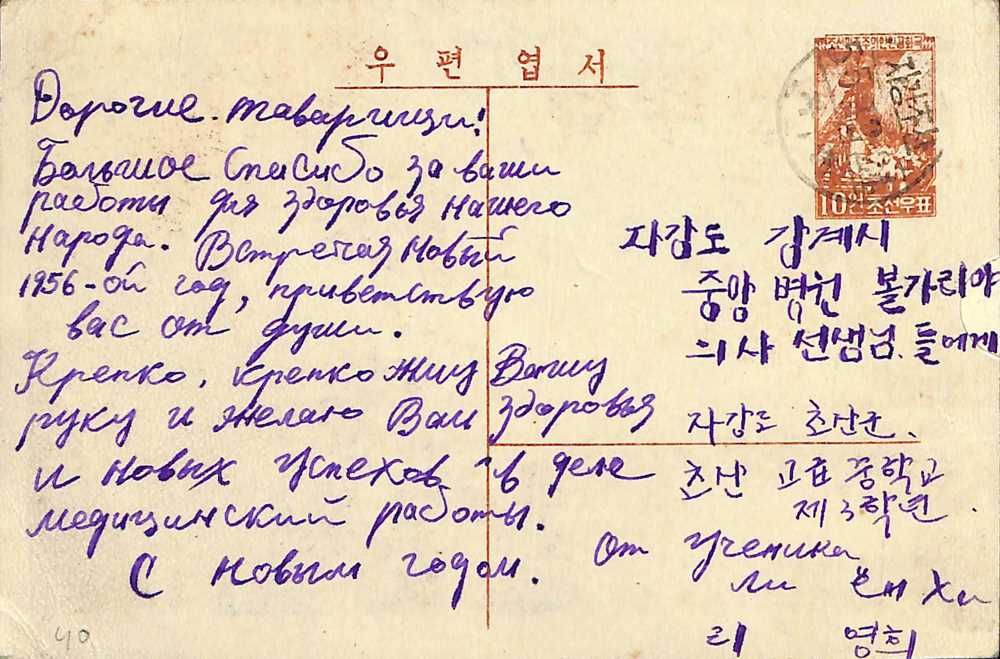 우편엽서
10전 조선우표
Дорогие таварищи!
Большое спасибо за ваши
работы для здоровья нашего
народа. Встречая новый
1956-ой год, приветствую
вас от души.
Крепко, крепко жму Вашу
руку и желаю Вам здоровья
и новых успехов в деле
медицинский работы.
С новым годом.
자강도 강계시
중앙 병원 볼가리야
의사 선생님들에게
자강도 초산군.
초산 고급 중학교
제3학년.
От ученика
Ли Ен Хи
리 영희
40